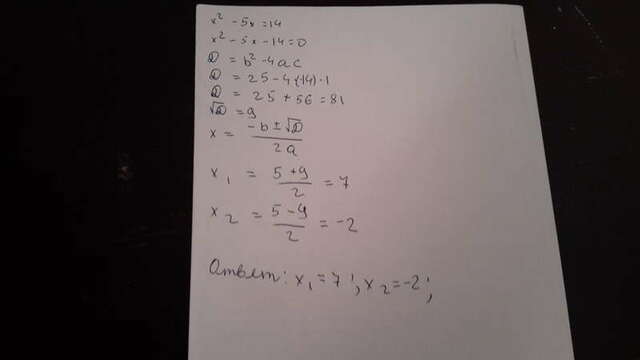 x² - 5x = 14
x² - 5x - 14 = 0
D = b² - 4ac
D = 25 - 4(-14)·1
D = 25 + 56 = 81
√D = 9
x = (-b ± √D) / 2a
x₁ = (5 + 9) / 2 = 7
x₂ = (5 - 9) / 2 = -2
Ответ: x₁ = 7; x₂ = -2;